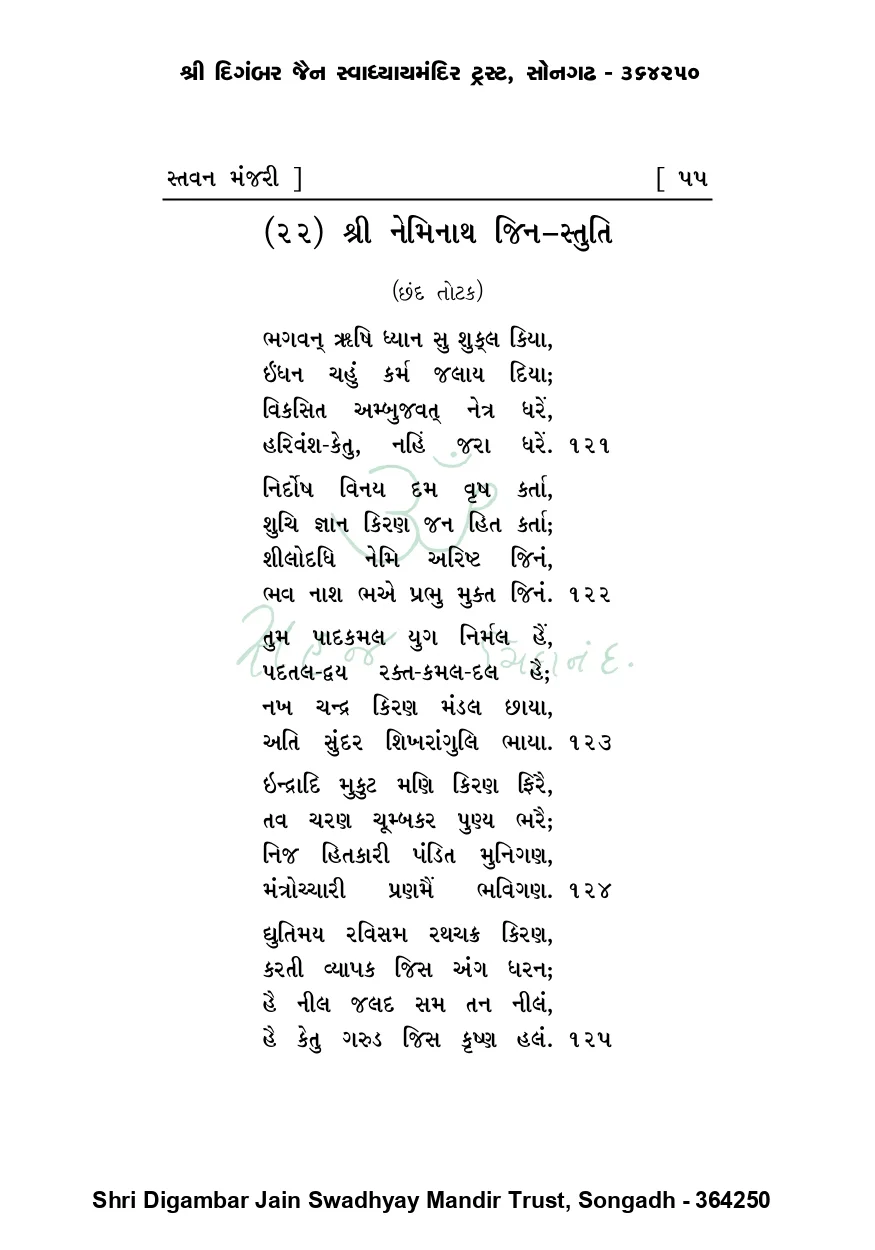 શ્રી દિગંબર જૈન સ્વાધ્યાયમંદિર ટ્રસ્ટ, સોનગઢ - ૩૬૪૨૫૦
સ્તવન મંજરી ] [ ૫૫
(૨૨) શ્રી નેમિનાથ જિન–સ્તુતિ
(છંદ તોટક)
ભગવન્ ઋષિ ધ્યાન સુ શુક્લ કિયા,
ઈંધન ચહું કર્મ જલાય દિયા;
વિકસિત અમ્બુજવત્ નેત્ર ધરેં,
હરિવંશ-કેતુ, નહિં જરા ધરેં. ૧૨૧
નિર્દોષ વિનય દમ વૃષ કર્તા,
શુચિ જ્ઞાન કિરણ જન હિત કર્તા;
શીલોદધિ નેમિ અરિષ્ટ જિનં,
ભવ નાશ ભએ પ્રભુ મુક્ત જિનં. ૧૨૨
તુમ પાદકમલ યુગ નિર્મલ હૈં,
પદતલ-દ્વય રક્ત-કમલ-દલ હૈ;
નખ ચન્દ્ર કિરણ મંડલ છાયા,
અતિ સુંદર શિખરાંગુલિ ભાયા. ૧૨૩
ઇન્દ્રાદિ મુકુટ મણિ કિરણ ફિરૈ,
તવ ચરણ ચૂમ્બકર પુણ્ય ભરૈ;
નિજ હિતકારી પંડિત મુનિગણ,
મંત્રોચ્ચારી પ્રણમૈં ભવિગણ. ૧૨૪
દ્યુતિમય રવિસમ રથચક્ર કિરણ,
કરતી વ્યાપક જિસ અંગ ધરન;
હૈ નીલ જલદ સમ તન નીલં,
હૈ કેતુ ગરુડ જિસ કૃષ્ણ હલં. ૧૨૫
Shri Digambar Jain Swadhyay Mandir Trust, Songadh - 364250